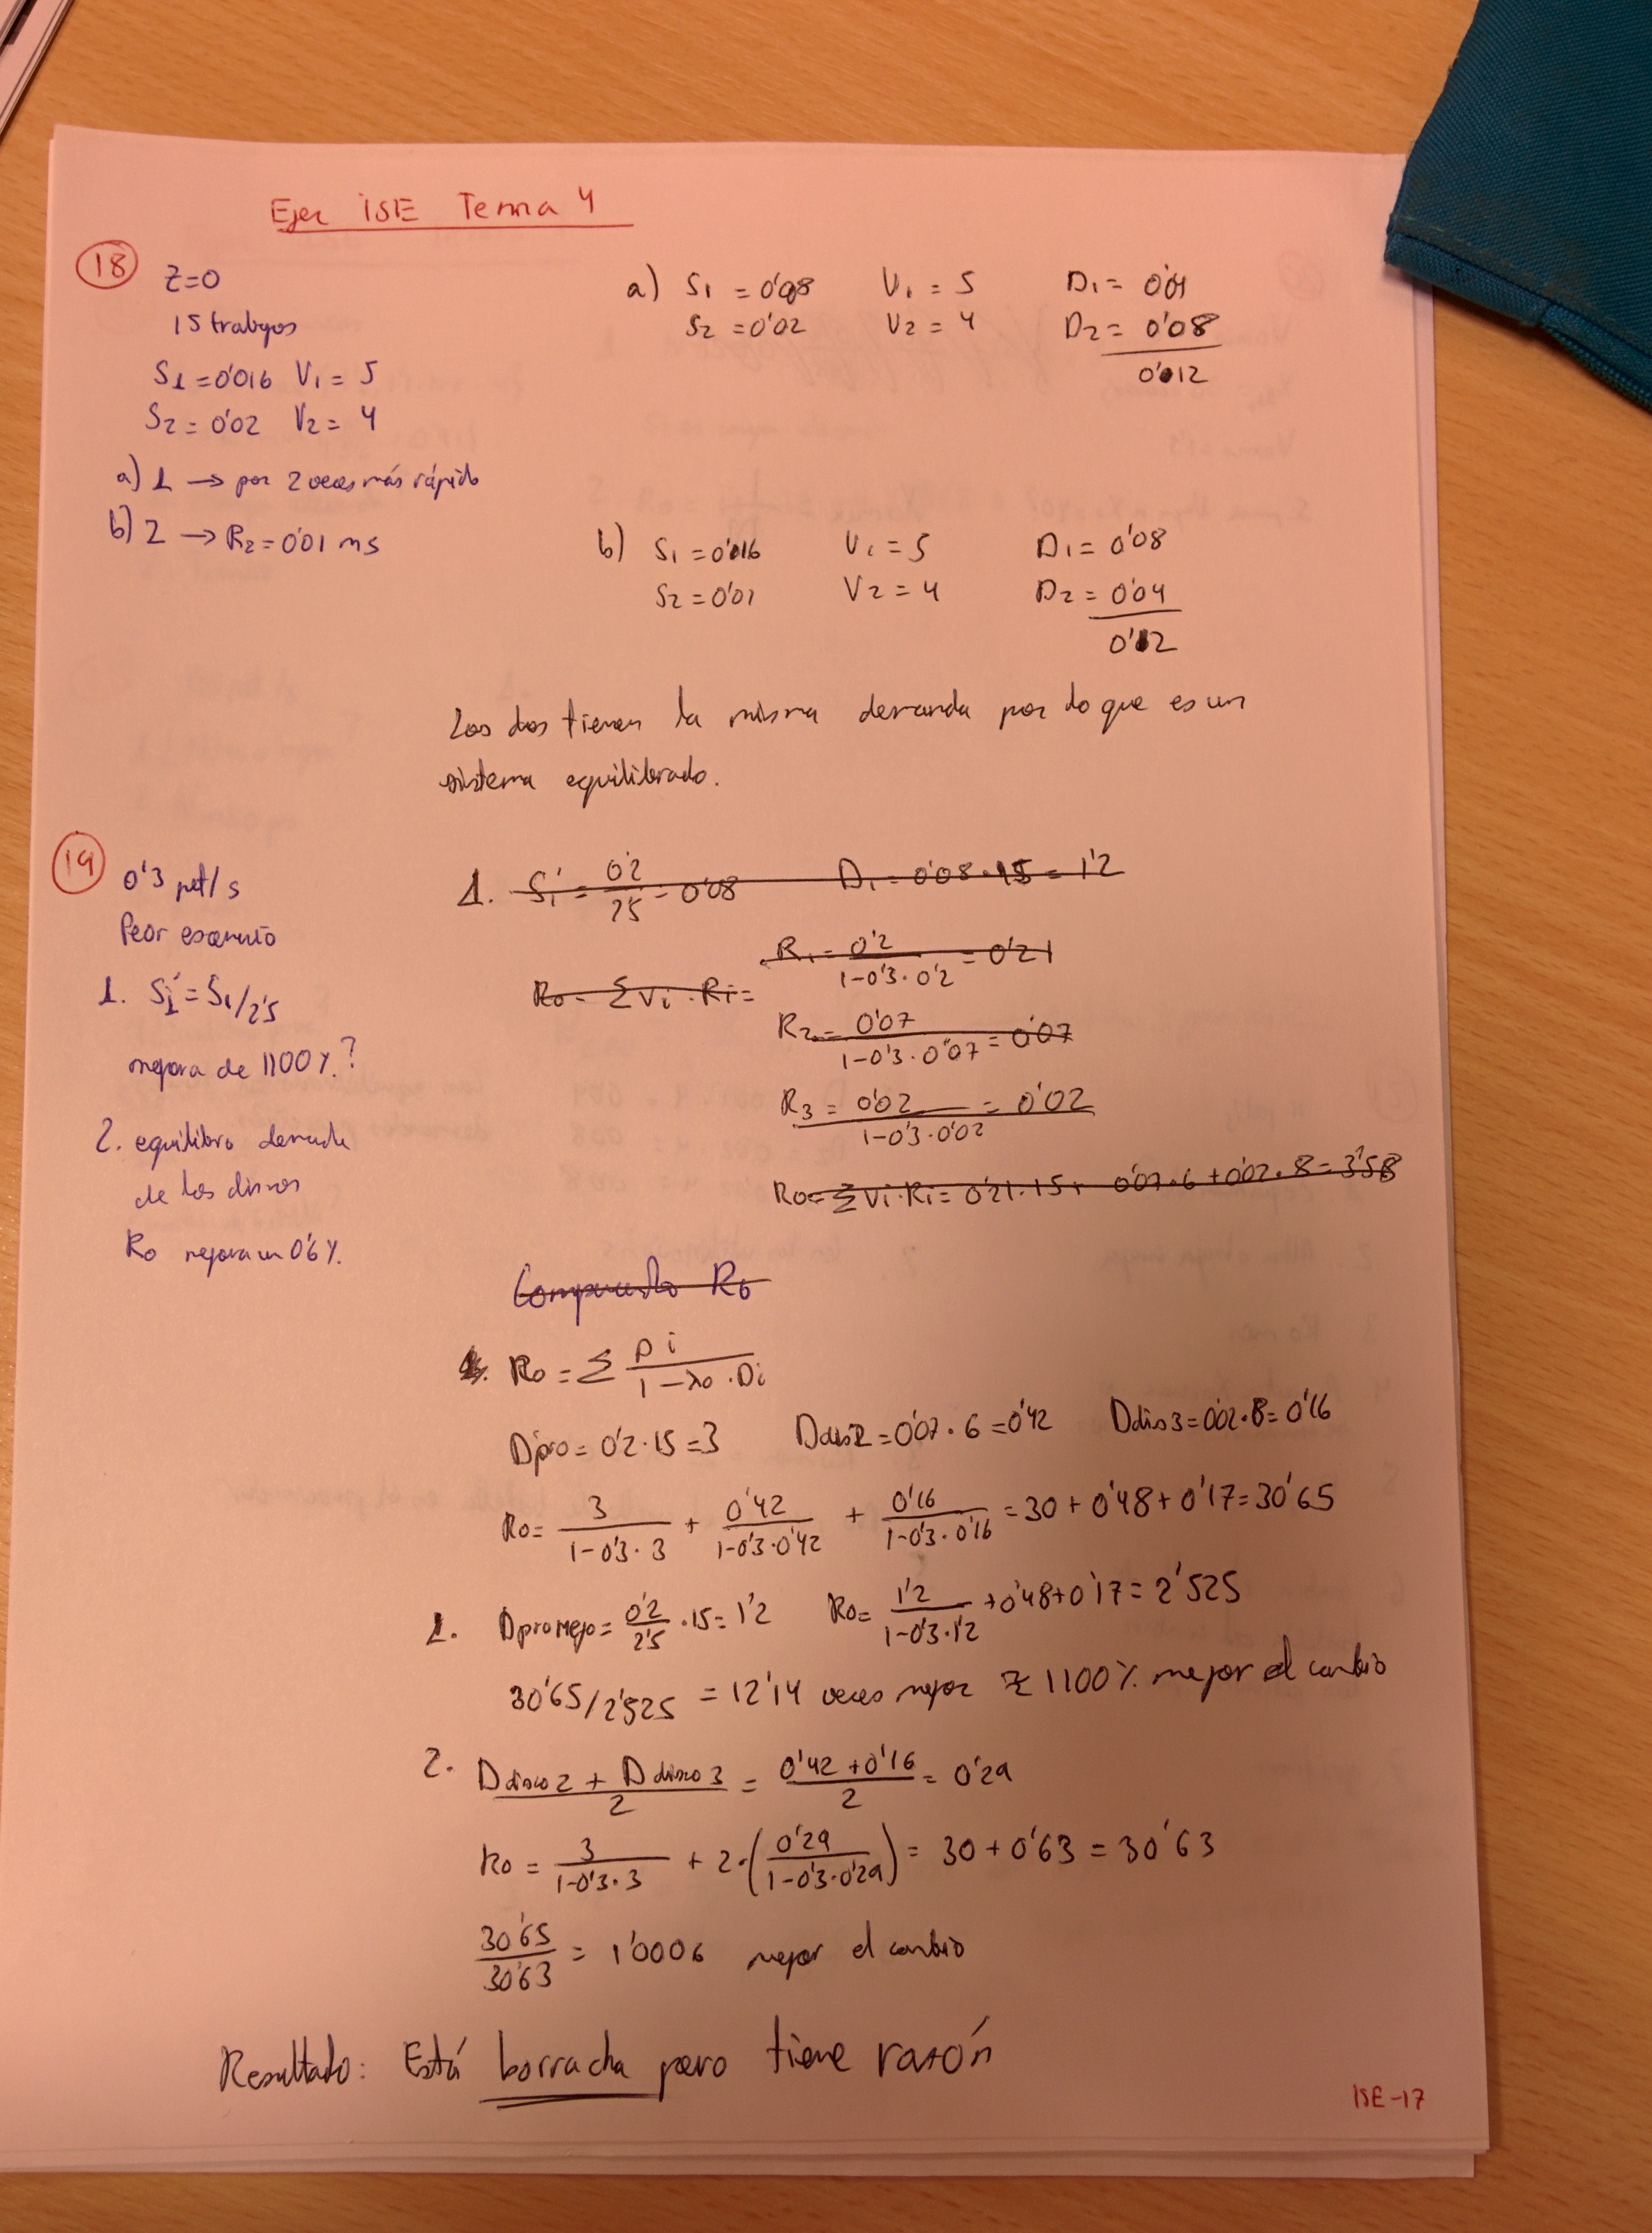 Ejer ISE Tema 4
18 Z=0
15 trabajos
S1=0'016 V1= 5
S2=0'02 V2= 4
a) 1 → por 2 veces más rápido
b) 2 → R2=0'01 ms
a) S1 = 0'08 V1 = 5 D1= 0'01
S2 =0'02 V2 = 4 D2= 0'08
0'12
b) S1=0'016 V1=5 D1= 0'08
S2=0'01 V2=4 D2=0'04
0'12
Los dos tienen la misma demanda por lo que es un
sistema equilibrado.
19 0'3 pet/s
Peor escenario
1. S1'=S1/2'5
mejora de 1100%?
2. equilibro demada
de los discos
Ro mejora un 0'6%.
1. S1' = 0'2/2'5 = 0'08 D1=0'08·15=1'2
R1= 0'2/1-0'3·0'2 = 0'21
Ro= ΣVi·Ri=
R2= 0'07/1-0'3·0'07 = 0'07
R3 = 0'02/1-0'3·0'02 = 0'02
Ro=ΣVi·Ri=0'21·15+ 0'07·6+0'02·8=3'58
Ro
Ro = Σ Di/1-λo·Di
Dpro=0'2·15=3 Ddis2=0'07·6=0'42 Ddis3=0'02·8=0'16
Ro= 3/1-0'3·3 + 0'42/1-0'3·0'42 + 0'16/1-0'3·0'16 = 30+0'48+0'17=30'65
1. Dpromejo= 0'2/2'5 ·15=1'2 Ro= 1'2/1-0'3·1'2 +0'48+0'17=2'525
30'65/2'525 = 12'14 veces mejor ≈ 1100% mejor el cambio
2. Ddisco2 + Ddisco3/2 = 0'42+0'16/2 = 0'29
Ro = 3/1-0'3·3 + 2·(0'29/1-0'3·0'29) = 30+0'63=30'63
30'65/30'63 = 1'0006 mejor el cambio
Resultado: Está borracha pero tiene razón
ISE-17